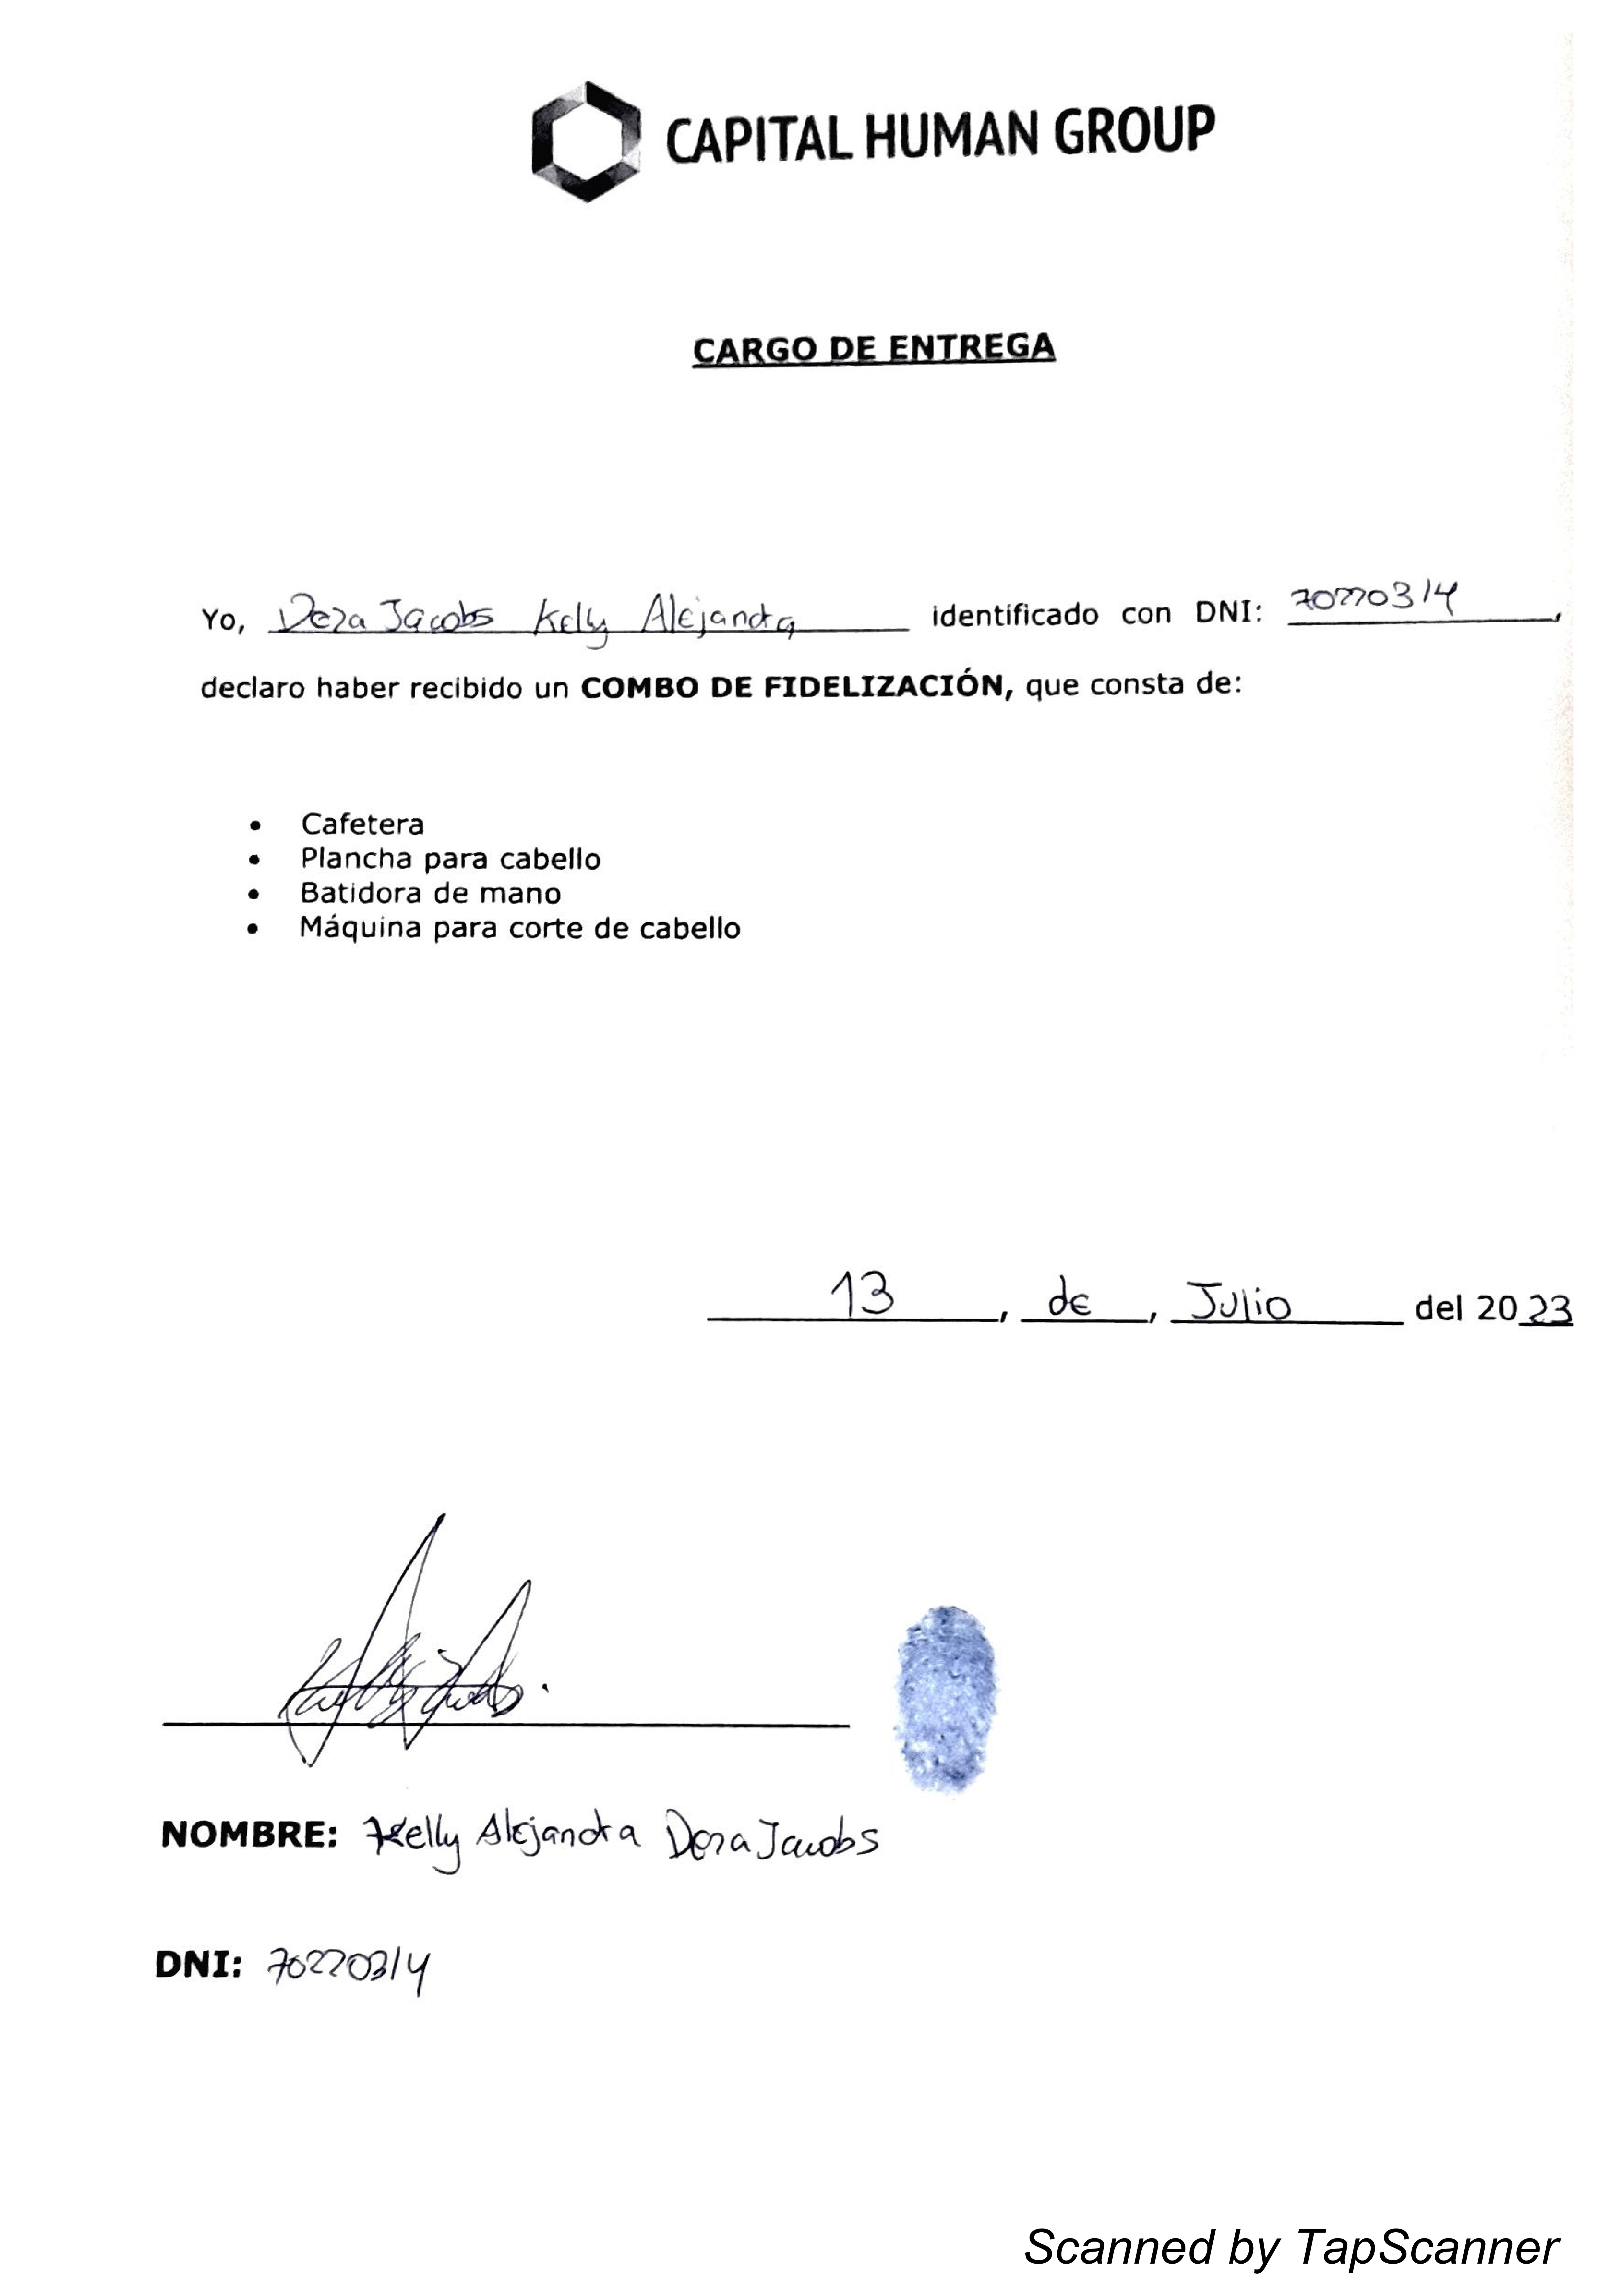 CAPITAL HUMAN GROUP
CARGO DE ENTREGA
Yo, Deza Jacobs Kelly Alejandra identificado con DNI: 70270314,
declaro haber recibido un COMBO DE FIDELIZACIÓN, que consta de:
• Cafetera
• Plancha para cabello
• Batidora de mano
• Máquina para corte de cabello
13, de, Julio del 2023
NOMBRE: Kelly Alejandra Deza Jacobs
DNI: 70220314
Scanned by TapScanner